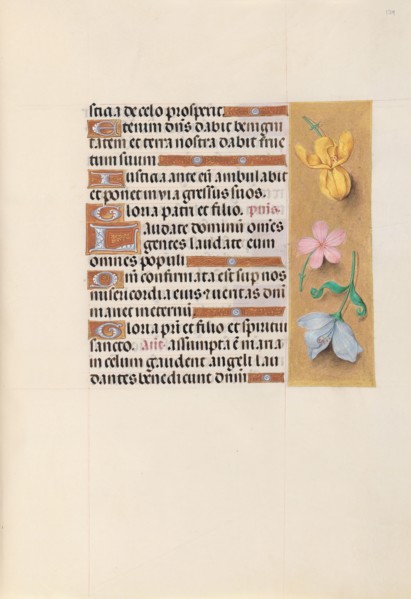 sticia de celo prosperit.
Etenim dñs dabit benigni
tatem et terra nostra dabit fruc
tum suum.
Iusticia ante eũ ambulabit
et ponet in via gressus suos.
Gloria patri et filio. p̃us.
Laudate dominũ om̃es
gentes laudate eum
omnes populi
Qm̃ confirmata est sup nos
misericordia eius et veritas dñi
manet in eternũ.
Gloria pr̃i et filio et spiritui
sancto. Añt. Assumpta ẽ maria
in celum gaudent angeli lau
dantes benedicunt dnm̃